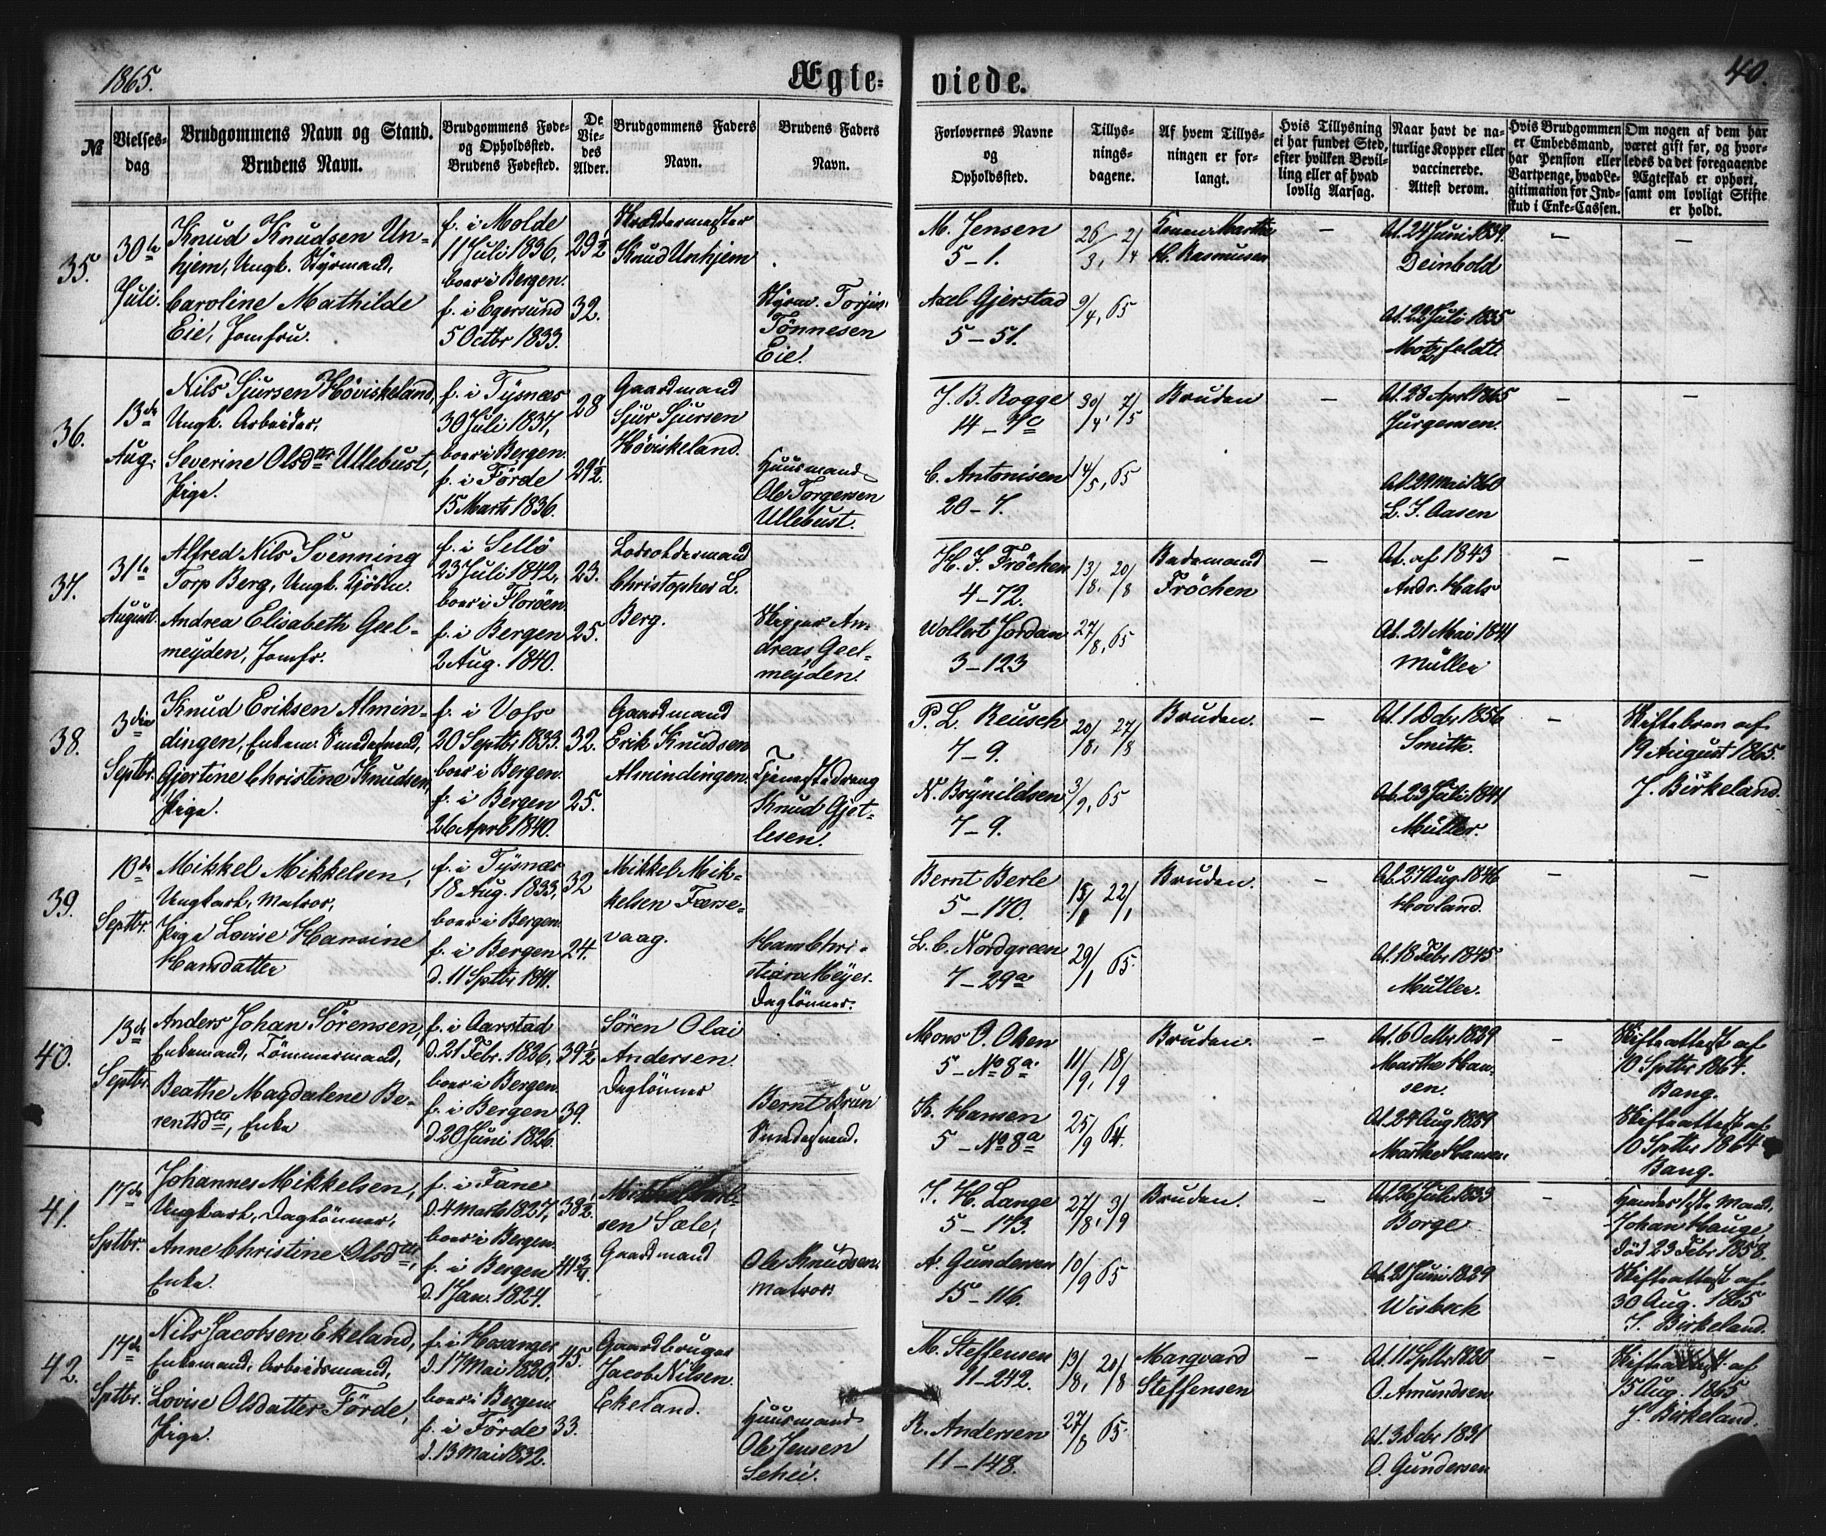 1865.
Ægte-
viede.
40.
№
Vielses-
dag
Brudgommens Navn og Stand.
Brudens Navn.
Brudgommens Føde-
og Opholdsted.
Brudens Fødested.
De
Vie-
des
Alder.
Brudgommens Faders
Navn.
Brudens Faders
Navn.
Forlovernes Navne
og
Opholdsted.
Tillys-
nings-
dagene.
Af hvem Tillys-
ningen er for-
langt.
Hvis Tillysning
ei har fundet Sted,
efter hvilken Bevil-
ling eller af hvad
lovlig Aarsag.
Naar havt de na-
turlige Kopper eller
vaccinerede.
Attest derom.
Hvis Brudgommen
er Embedsmand,
har Pension eller
Vartpenge, hvad Le-
gitimation for Ind-
skud i Enke-Cassen.
Om nogen af dem har
været gift før, og hvor-
ledes da det foregaaende
Ægteskab er ophørt,
samt om lovligt Skifte
er holdt.
35.
30te
Juli.
Knud Knudsen Un-
hjem, Ungk. Styrmand,
Caroline Mathilde
Eie, Jomfru.
f. i Molde
11 Juli 1836,
boer i Bergen.
f. i Egersund
5 Octbr 1833.
29½
32.
Knud Unhjem
Styrm. Torjus
Tönnesen
Eie.
M. Jensen
5-1.
Axel Gjerstad
5-51.
26/3, 2/4
9/4, 65
Martha
H. Rasmusen
-
At. 24 Juni 1839.
Deinbold
At. 22 Juli 1835
Motzfeldt.
-
-
36.
13de
Aug.
Nils Sjursen Höviskeland,
Ungk. Arbeider.
Severine Olsdtr Ullebust,
Pige.
f. i Tysnæs
30 Juli 1837,
boer i Bergen.
f. i Förde
15 Marts 1836.
28
29½.
Gaardmand
Sjur Sjursen
Höviskeland.
Huusmand
Ole Torgersen
Ullebust.
J. B. Rogge
14-7c
C. Antonisen
20-7.
30/4, 7/5
14/5, 65
Bruden
-
At. 28 April 1865
Jurgensen.
At. 29 Mai 1860
L. S. Aasen
-
-
37.
31te
August.
Alfred Nils Svenning
Torp Berg, Ungk. Kjöbm.
Andrea Elisabeth Geel-
meyden, Jomfr.
f. i Sellö
23 Juli 1842,
boer i Floröen.
f. i Bergen
2 Aug. 1840.
23.
25.
Lodsoldermand
Christopher L.
Berg.
Skipper An-
dreas Geel-
meyden.
H. J. Fröchen
4-72.
Wollert Jordan
3-123
13/8, 20/8
27/8, 65
Bademand
Fröchen
-
At. af 1843
Andr. Hals
At. 21 Mai 1841
Müller
-
-
38.
3die
Septbr.
Knud Eriksen Almin-
dingen, Enkem. Smedesvend,
Gjertine Christine Knudsen,
Pige.
f. i Voss
20 Septbr 1833.
boer i Bergen.
f. i Bergen
26 April 1840.
32.
25.
Gaardmand
Erik Knudsen
Almindingen.
Tjenestedreng
Knud Gjet-
lesen.
P. L. Reusch
7-9.
N. Brynildsen
7-9.
20/8, 27/8
3/9, 65
Bruden.
-
At. 1 Decbr 1856
Smith.
At. 23 Juli 1841
Müller.
-
Skiftebrev af
19 August 1865.
J. Birkeland.
39.
10de
Septbr.
Mikkel Mikkelsen,
Ungkarl, Matros,
Pige Lovise Hansine
Hansdatter
f. i Tysnæs
18 Aug. 1833,
boer i Bergen.
f. i Bergen
d. 11 Sptbr 1841.
32
24.
Mikkel Mik-
kelsen Færse-
vaag.
Hans Chri-
stian Meyer.
Daglönner.
Bernt Berle
5-170.
L. C. Nordgreen
7-29a
15/1 22/1
29/1 65.
Bruden.
-
At. 27 Aug. 1846
Hovland.
At. 18 Febr 1845
Müller.
40.
13de
Septbr.
Anders Johan Sörensen,
Enkemand, Tömmermand,
Beathe Magdalene Be-
rentsdtr, Enke
f. i Aarstad
d. 21 Febr. 1826,
boer i Bergen.
f. i Bergen
d. 20 Juni 1826
39½
39.
Sören Olai
Andersen
Daglönner
Bernt Brun
Smedesvend.
Mons O. Olsen
5-No 8a.
K. Hansen
5-No 8a
11/9, 18/9
25/9 64.
Bruden.
-
At. 6 Octbr 1839
Marthe Han-
sen.
At. 24 Aug. 1839
Marthe Hansen
-
Skifteattest af
10 Sptbr 1864.
Bang.
Skifteattest af
10 Sptbr 1864
Bang.
41.
17de
Sptbr.
Johannes Mikkelsen,
Ungkarl, Daglönner,
Anne Christine Olsdtr,
Enke.
f. i Fane
d. 4 Marts 1827,
boer i Bergen.
f. i Bergen
d. 1 Jan. 1824.
38½
41¾
sen Sæle,
Gaardmand
Ole Knudsen.
Matros
J. H. Lange
5-173.
A. Gundersen
15-116.
27/8, 3/9
10/9 65
Bruden.
-
At. 26 Juli 1833
Borge
At. 21 Juni 1829
Wisbech
-
Mand,
Johan Hauge
död 23 Febr 1858,
Skifteattest af
30 Aug. 1865
J. Birkeland.
42.
17de
Sptbr.
Nils Jacobsen Ekeland,
Enkemand, Arbeidsmand,
Lovise Olsdatter Förde,
Pige.
f. i Hosanger
d. 17 Mai 1820,
boer i Bergen
f. i Förde
d. 13 Mai 1832.
45.
33.
Gaardbruger
Jacob Nilsen
Ekeland.
Huusmand
Ole Jensen
M. Steffensen
11-242.
R. Andersen
11-148.
13/8, 20/8
27/8 65.
Marqvard
Steffensen
-
At. 11 Sptbr 1830
O. Amundsen
At. 3 Decbr 1831
O. Gundersen
-
Skifteattest af
15 Aug. 1865
J. Birkeland.